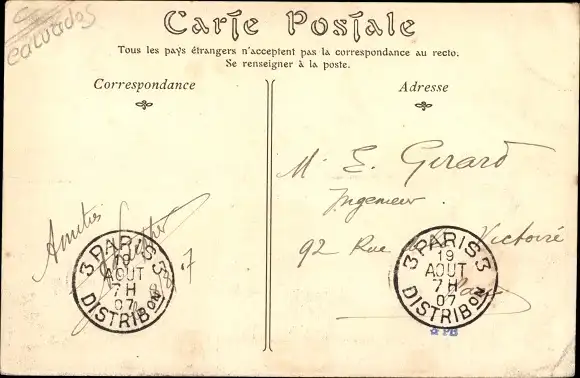 Calvados
Carte Postale
Tous les pays étrangers n'acceptent pas la correspondance au recto.
Se renseigner à la poste.
Correspondance
Adresse
Amitiés
M. E. Gerard
Ingenieur
92 Rue de la Victoire
Paris
3 PARIS 3
19
AOUT
7 H
07
DISTRIBON
3 PARIS 3
19
AOUT
7 H
07
DISTRIBON